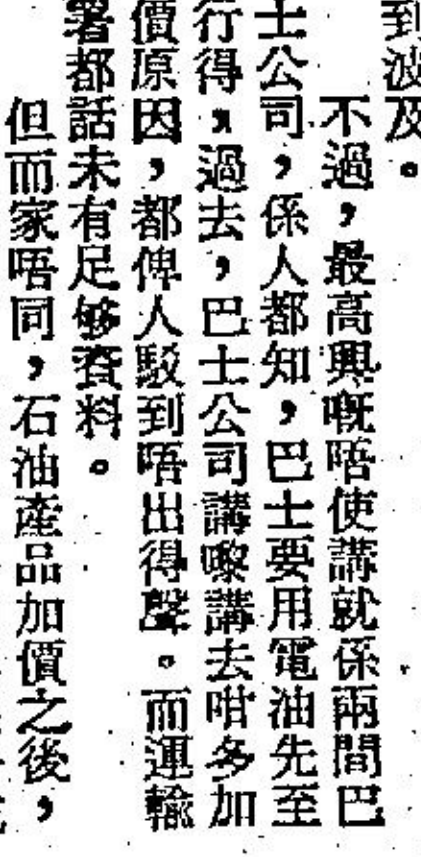 到波及。
不過，最高興嘅唔使講就係兩間巴
士公司，係人都知，巴士要用電油先至
行得，過去，巴士公司講嚟講去咁多加
價原因，都俾人駁到唔出得聲。而運輸
署都話未有足够資料。
但而家唔同，石油產品加價之後，